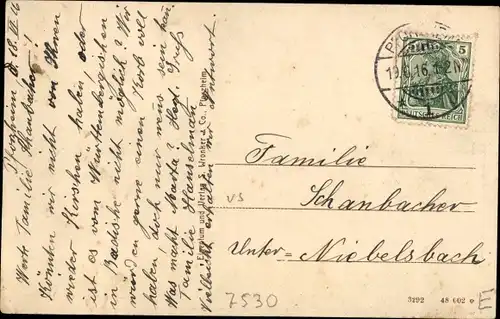 Pforzheim d. 18. VI. 16
Werte Familie Schanbacher!
Könnten wir nicht von Ihnen
wieder Kirschen haben, oder
ist es vom Württembergischen
in Badische nicht möglich? Wir
würden gerne einen Korb voll
haben, doch nur wens sein kann.
Was macht Marta? Herzl. Gruß
Familie Hanselmann
Vielleicht erhalten wir Antwort.
Eigentum und Verlag v. Wronker & Co., Pforzheim.
19.6.16.
5
DEUTSCHES REICH
Familie
Schanbacher
Unter-Niebelsbach
vs
7530
3192 48 602
E